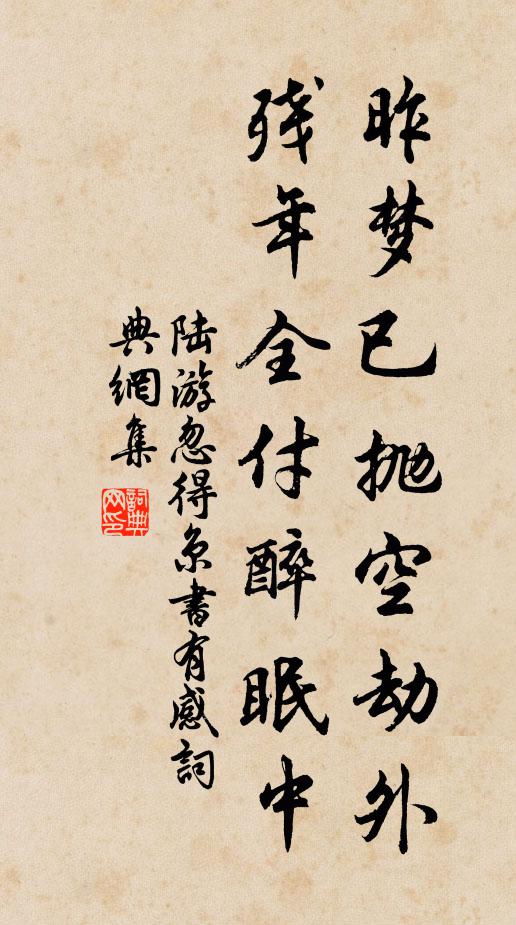 昨梦已抛空劫外
残年全付醉眠中
陆游忽得京書有感詞
典網集
詞典网印